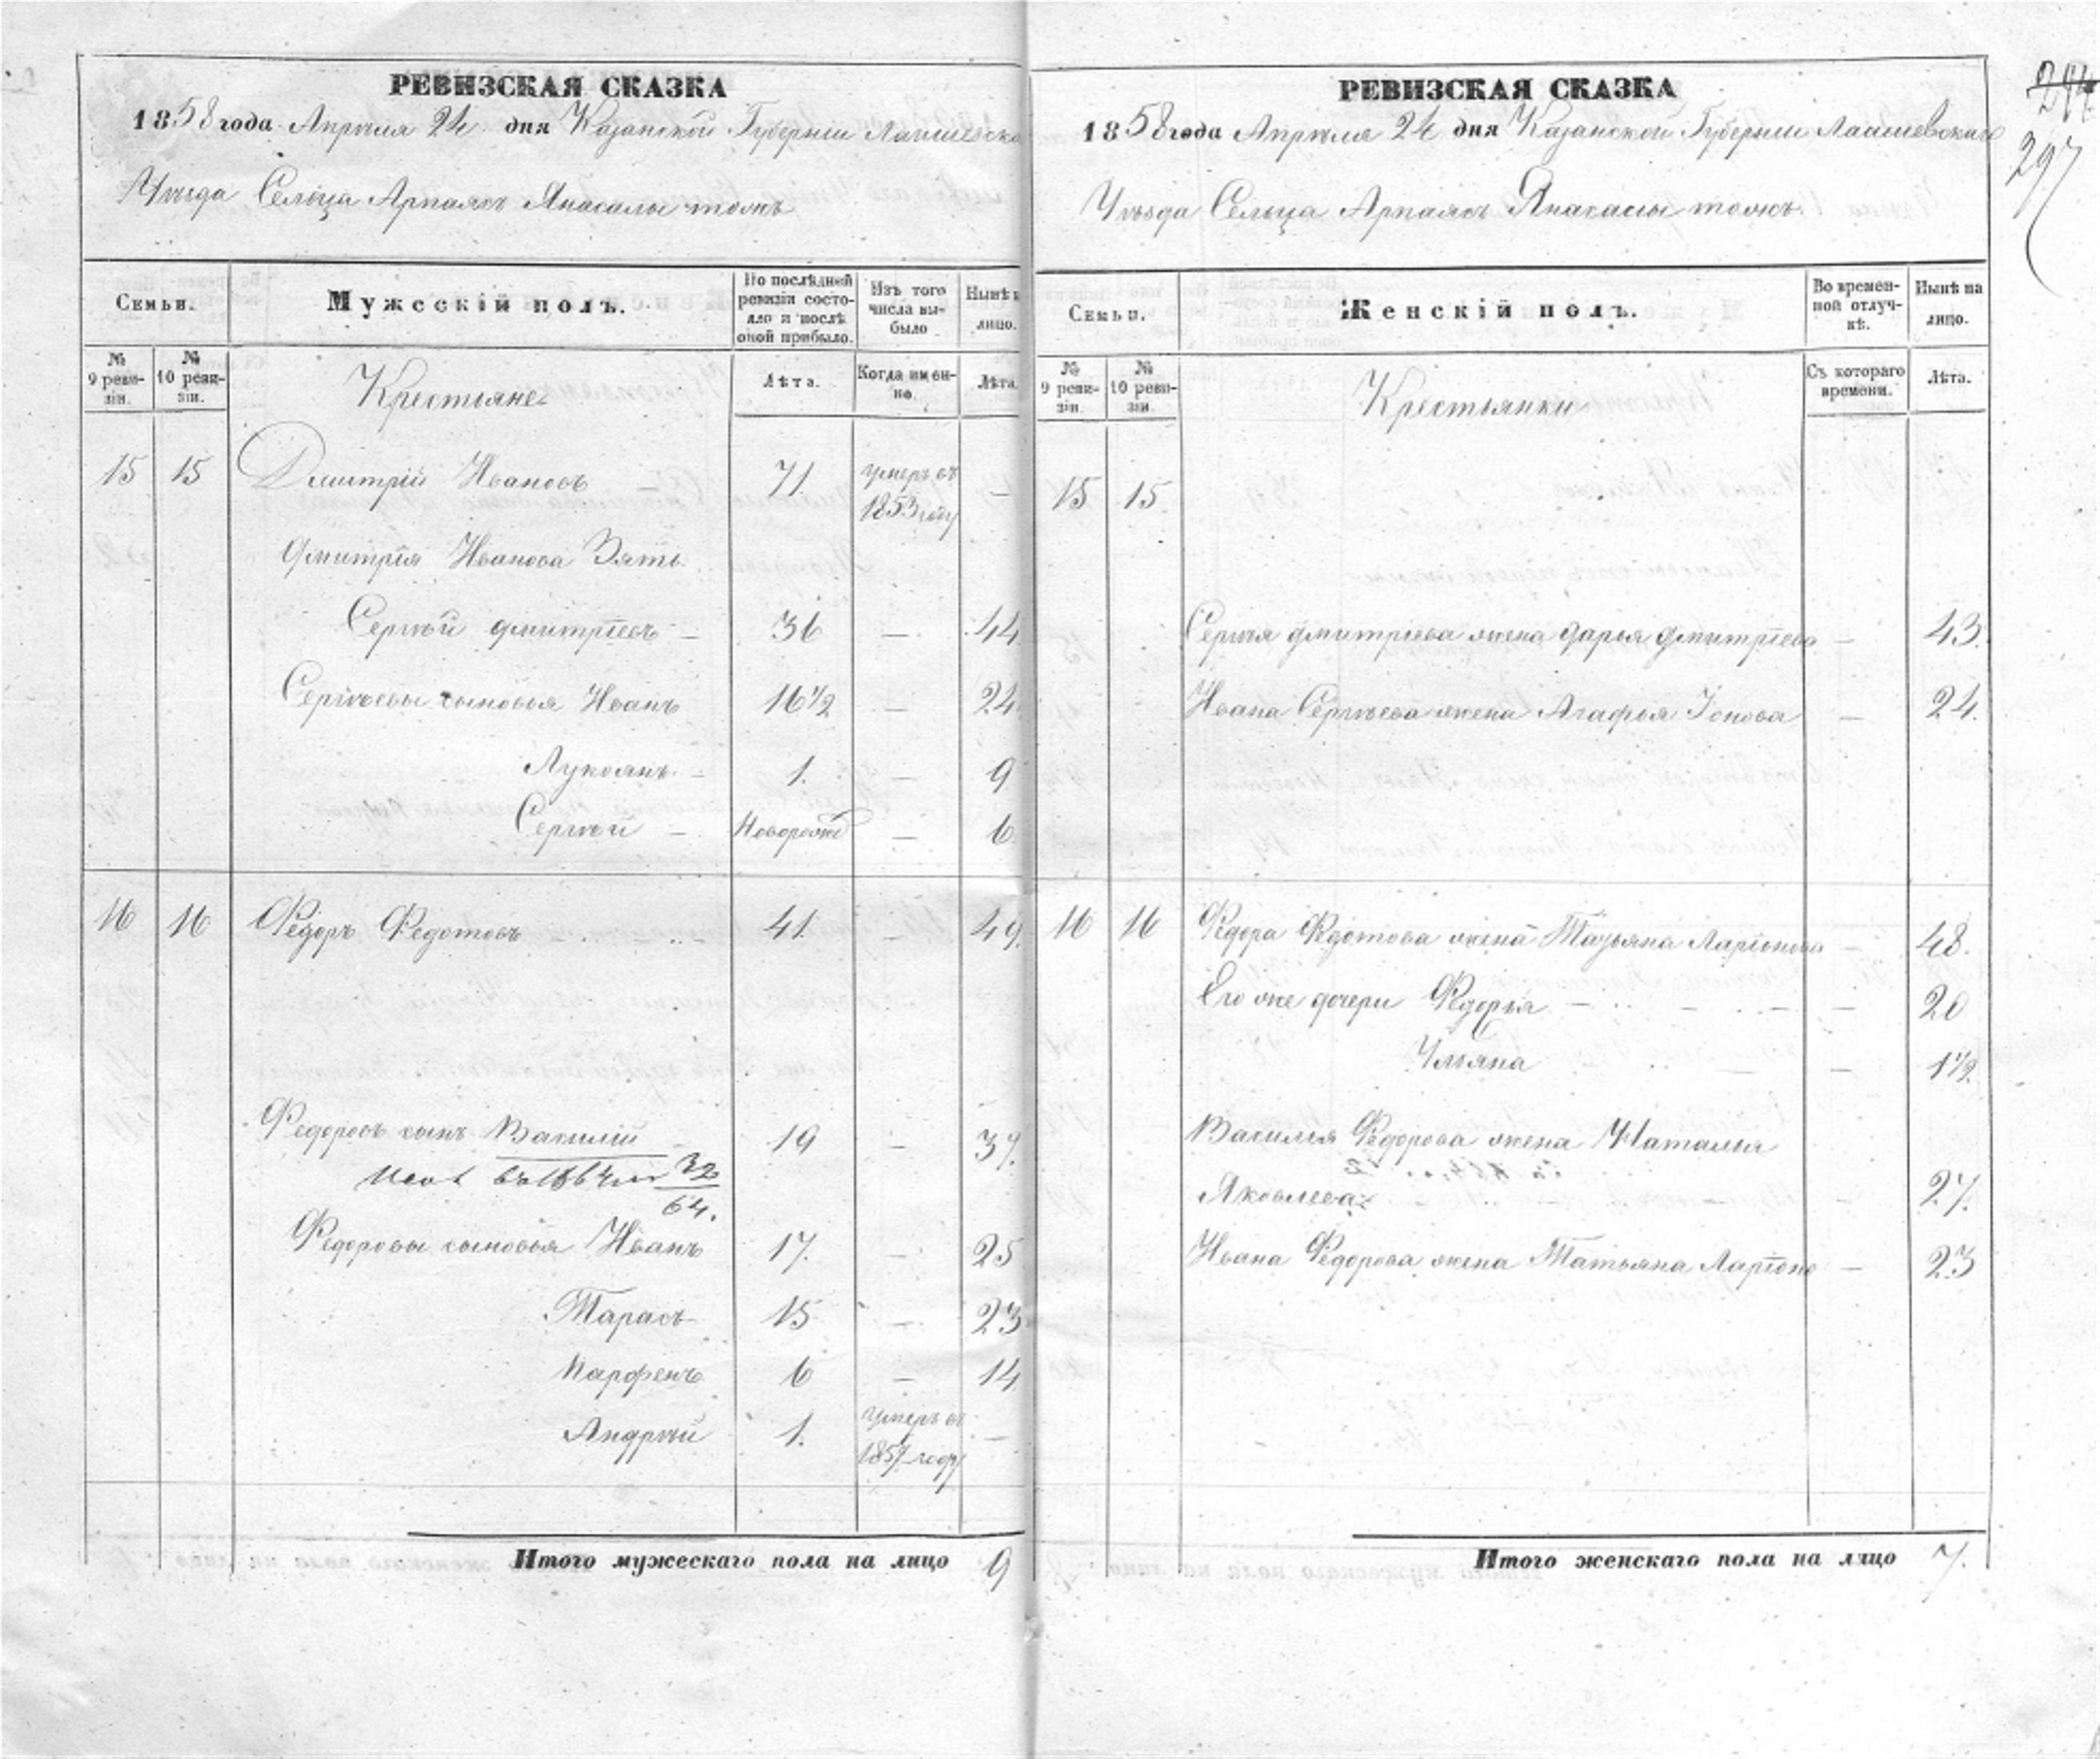 РЕВИЗСКАЯ СКАЗКА
1858 года Апрѣля 24 дня Казанской Губерніи Лаишевска
Уѣзда Сельца Арпаясъ Янасалы тожъ
Семьи.
Мужсскій полъ.
По послѣдней ревизіи состояло и послѣ оной прибыло.
Изъ того числа выбыло
Нынѣ н лицо.
№ 9 ревизіи.
№ 10 ревизіи.
Крестьяне
Лѣта.
Когда именно.
Лѣта.
15 15 Дмитрій Ивановъ — 71 умеръ въ 1853 году —
Дмитрія Иванова Зять
Сергѣй Дмитріевъ — 36 — 44
Сергѣевы сыновья Иванъ 16 1/2 — 24
Лукоянъ — 1. — 9
Сергѣй — Новорожд — 6
16 16 Ѳедоръ Ѳедотовъ 41 — 49.
Ѳедоровъ сынъ Василій 19 — 37.
въ 1864 32
64.
Ѳедоровы сыновья Иванъ 17. — 25
Тарасъ 15 — 23
Парфенъ 6 — 14
Андрѣй 1. умеръ въ 1857 году —
Итого мужескаго пола на лицо 9
РЕВИЗСКАЯ СКАЗКА
1858 года Апрѣля 24 дня Казанской Губерніи Лаишевскаго
Уѣзда Сельца Арпаясъ Янасалы тожъ.
244
297
Семьи.
Женскій полъ.
Во временной отлучкѣ.
Нынѣ на лицо.
№ 9 ревизіи.
№ 10 ревизіи.
Крестьянки
Съ котораго времени.
Лѣта.
15 15
Сергѣя Дмитріева жена Дарья Дмитріева — 43.
Ивана Сергѣева жена Агафья Іонова — 24.
16 16 Ѳедора Ѳедотова жена Татьяна Ларіонова — 48.
Его же дочери Ѳедорья — 20
Ульяна — 1 1/2
Василья Ѳедорова жена Наталья
Яковлева — 27.
Ивана Ѳедорова жена Татьяна Ларіоно — 23
Итого женскаго пола на лицо 7.